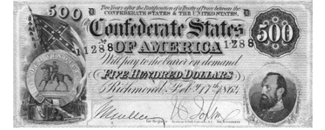 Two Years after the Ratification of a Treaty of Peace between the
CONFEDERATE STATES & THE UNITED STATES
500 D D
Confederate States
of America
500
11288 11288
Will pay to the bearer on demand
FIVE HUNDRED DOLLARS
Richmond Feb 17th 1864